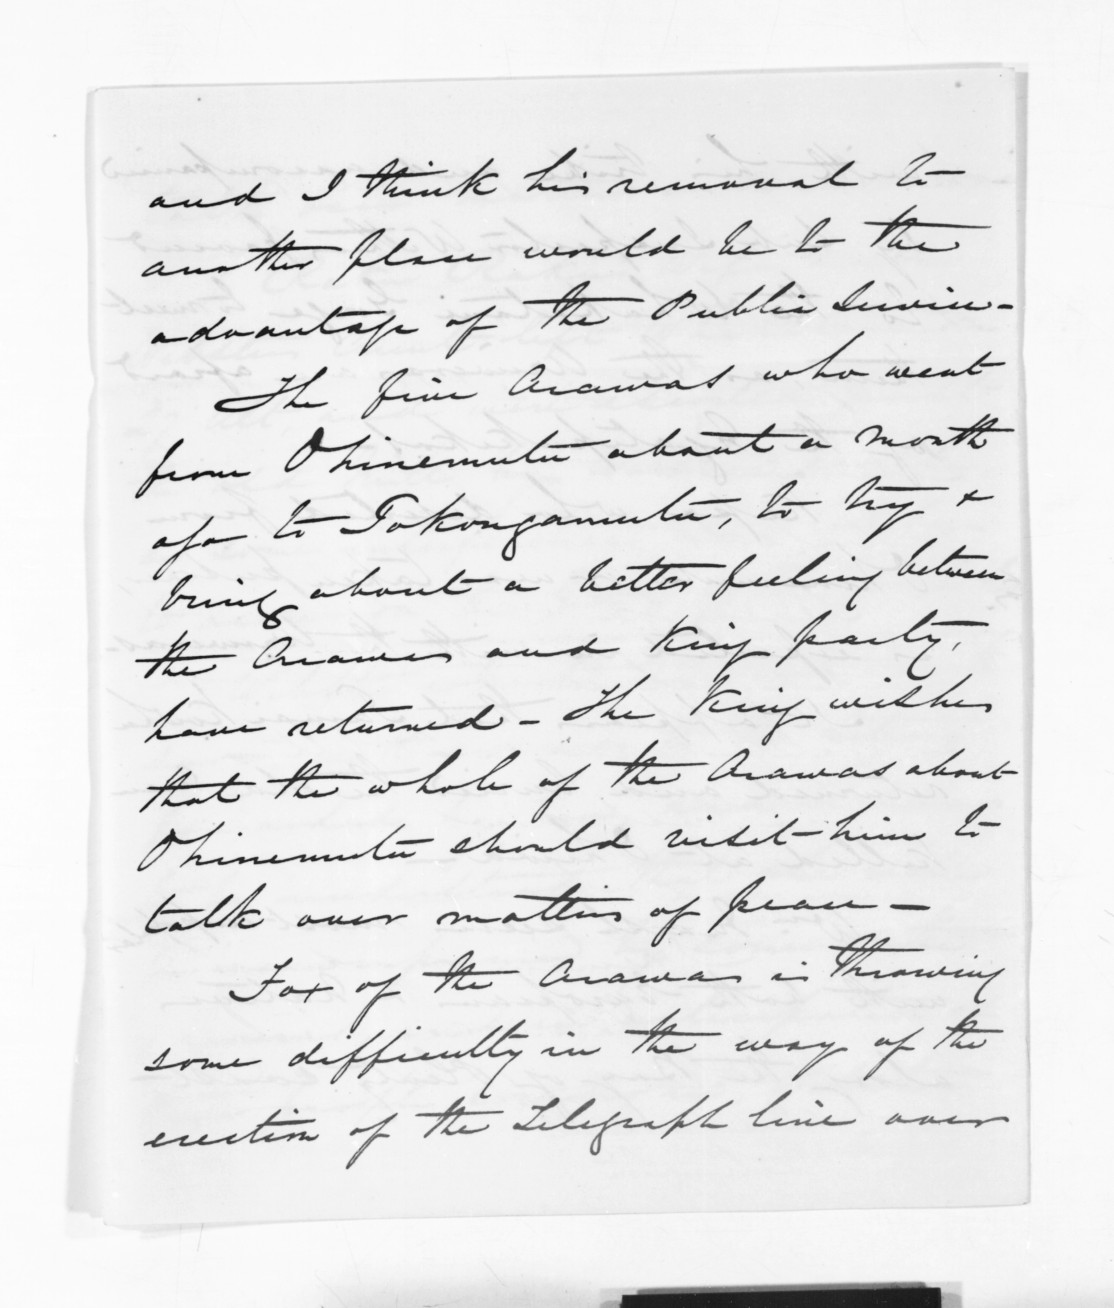 and I think his removal to
another place would be to the
advantage of the Public Service -
The five Arawas who went
from Ohinemutu about a month
ago to Tokongamutu, to try +
bring about a better feeling between
the Arawas and King party,
have returned - The King wishes
that the whole of the Arawas about
Ohinemutu should visit him to
talk over matters of peace -
Fox of the Arawas is throwing
some difficulty in the way of the
erection of the Telegraph line over